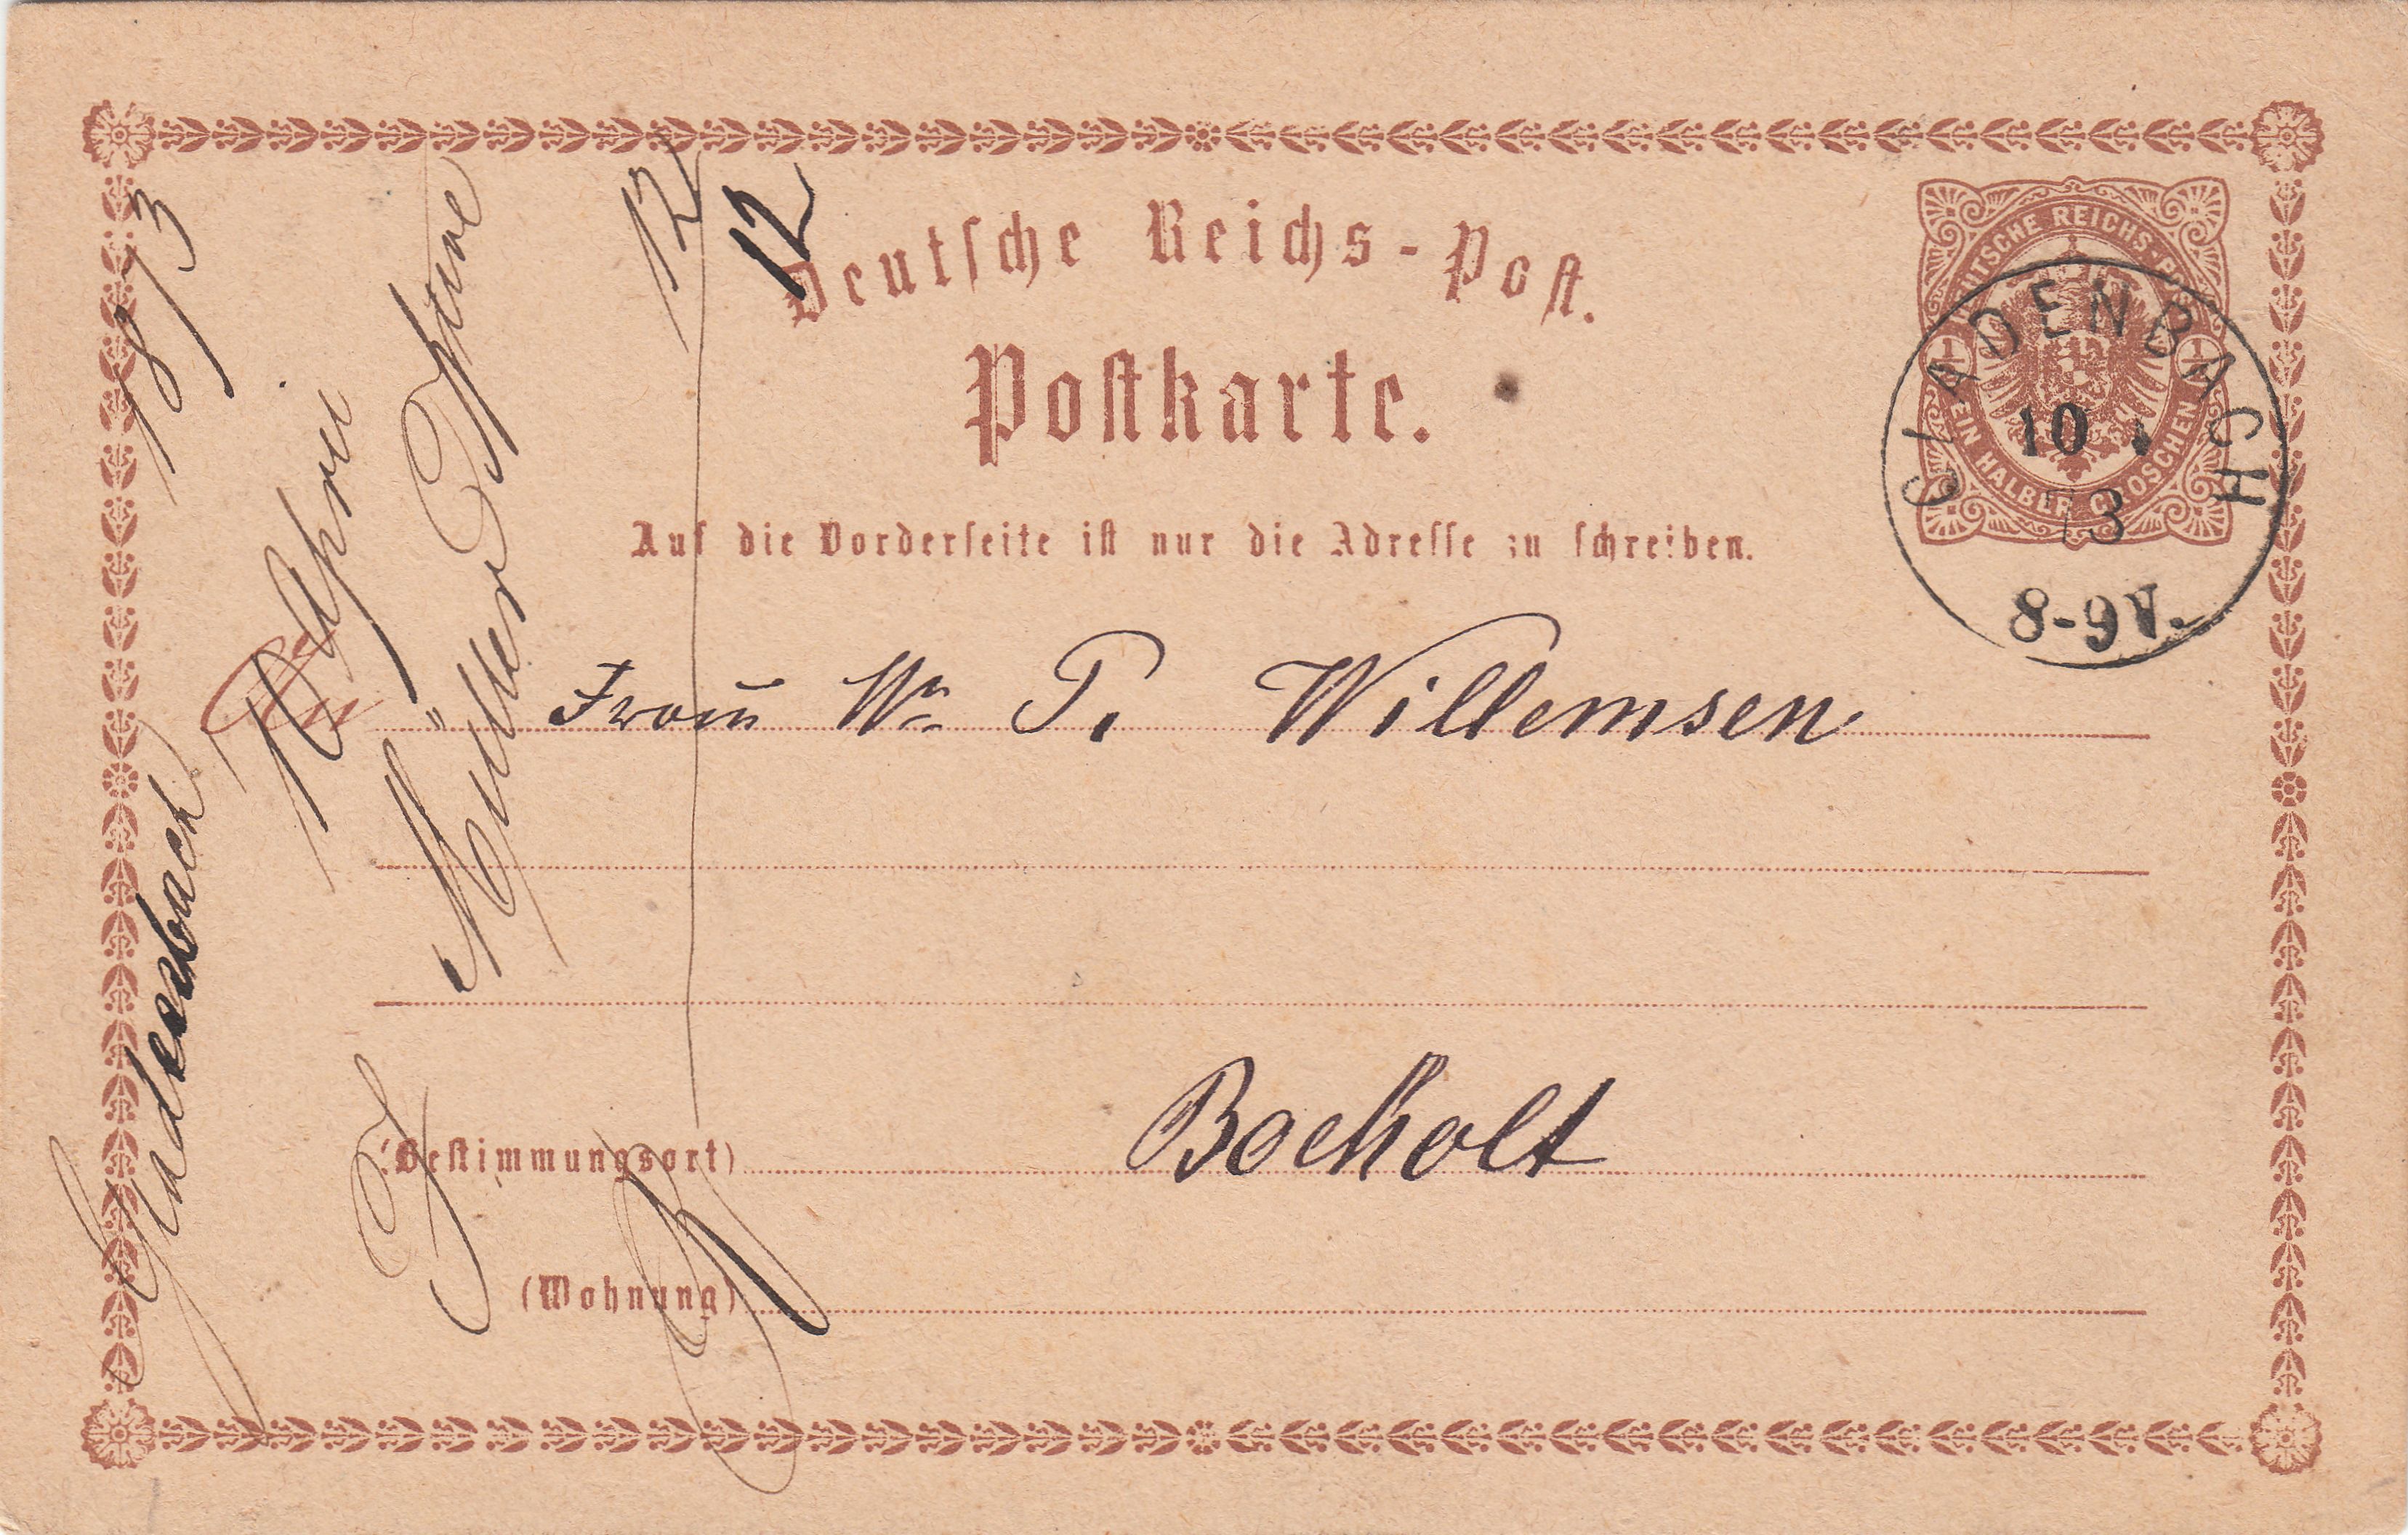 Deutsche Reichs-Post.
Postkarte.
Auf die Vorderseite ist nur die Adresse zu schreiben.
DEUTSCHE REICHS-POST
1/2 1/2
EIN HALBER GROSCHEN
GLADENBACH
10 4
73
8-9V.
An Frau Ww P. Willemsen
(Bestimmungsort) Bocholt
(Wohnung)
Gladenbach 10 April 1873
J Müller Stune
12
12